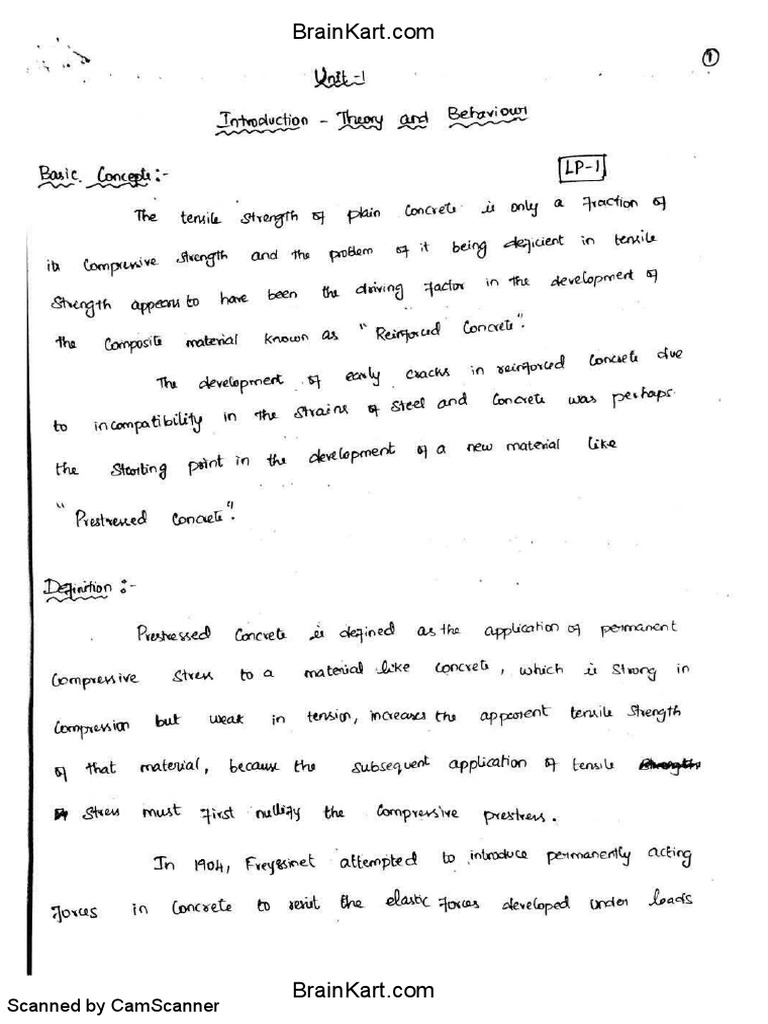 BrainKart.com
1
Unit-1
Introduction - Theory and Behaviour
Basic Concepts:-
LP-1
The tensile strength of plain concrete is only a fraction of
its compressive strength and the problem of it being deficient in tensile
strength appears to have been the driving factor in the development of
the composite material known as "Reinforced Concrete".
The development of early cracks in reinforced concrete due
to incompatibility in the strains of steel and concrete was perhaps
the starting point in the development of a new material like
"Prestressed Concrete".
Definition:-
Prestressed concrete is defined as the application of permanent
compressive stress to a material like concrete, which is strong in
compression but weak in tension, increases the apparent tensile strength
of that material, because the subsequent application of tensile strength
stress must first nullify the compressive prestress.
In 1904, Freyssinet attempted to introduce permanently acting
forces in concrete to resist the elastic forces developed under loads
BrainKart.com
Scanned by CamScanner